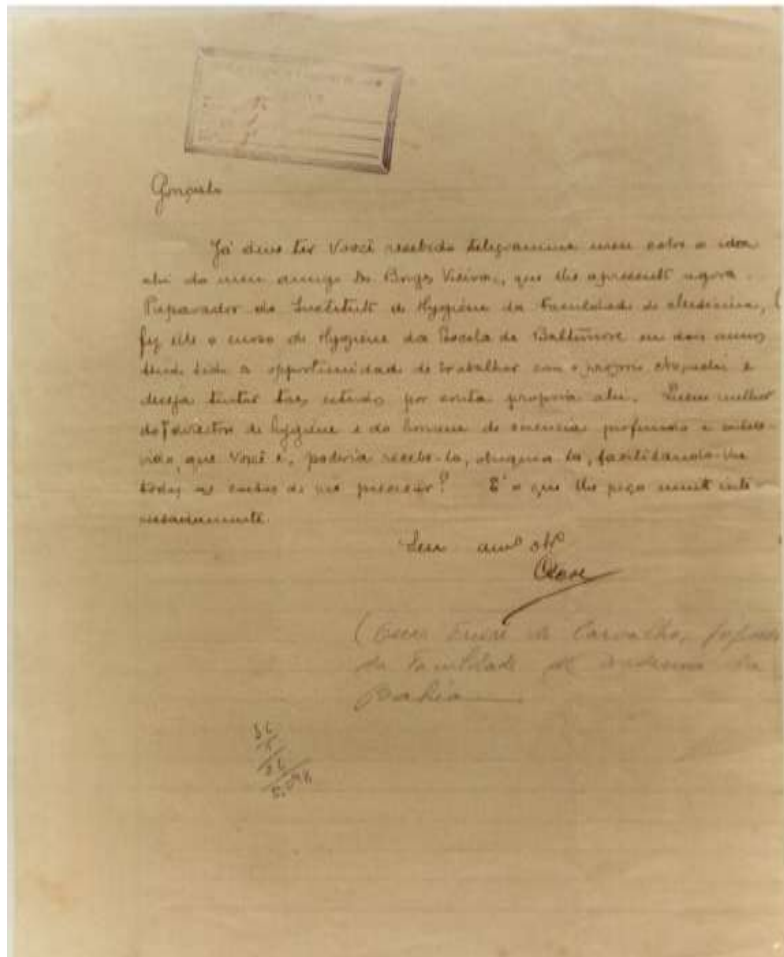 Gonçalo
Já deve ter Você recebido telegramma meu sobre a idea
ahi do meu amigo Dr Borges Vieira, que lhe apresento agora.
Preparador do Instituto de Hygiene da Faculdade de Medicina,
fez elle o curso de Hygiene da Escola de Baltimore em dois annos
tendo tido a opportunidade de trabalhar com o proprio e
deseja tentar taes estudos por conta propria ahi. Quem melhor
do director de hygiene e do homem de sciencia profundo e
que Você é, poderia recebe-lo, facilitando-lhe
todas as cousas de que precisar? E' o que lhe peço muit inte-
ressadamente.
Seu amº
Oscar
(Oscar Freire de Carvalho,
da Faculdade de Medicina da
Bahia
36